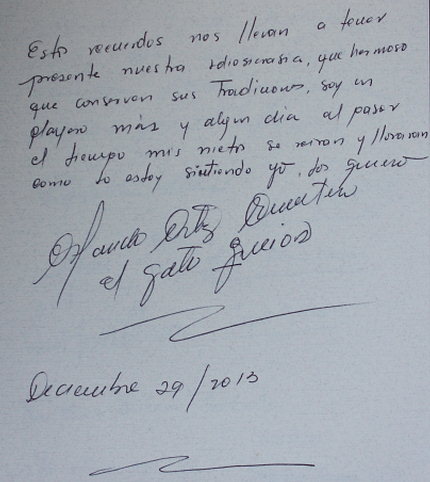 Estos recuerdos nos llevan a tener
presente nuestra idiosincrasia, que hermoso
que conserven sus Tradiciones, soy un
playero más y algun dia al pasar
el tiempo mis nietos se reiran y lloraran
como lo estoy sintiendo yo, los quiero
Orlando Ortiz
el gato
Diciembre 29/2013